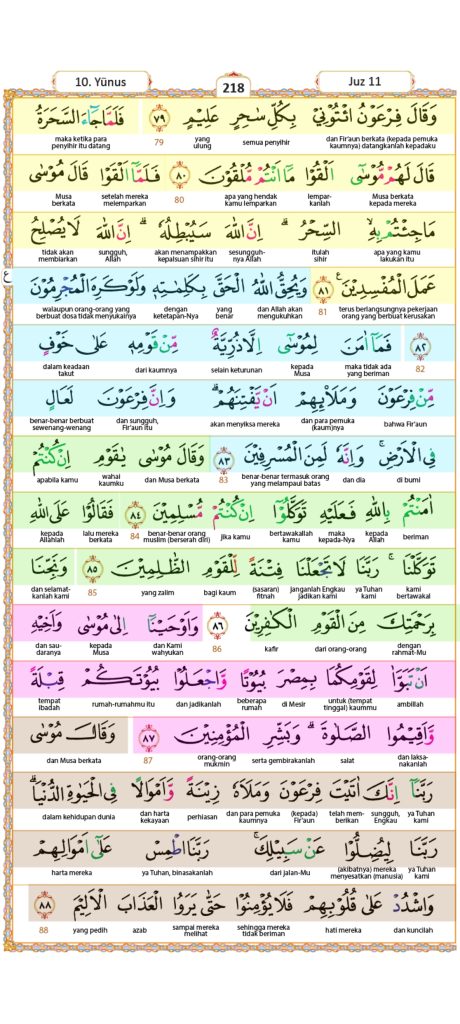 10. Yūnus 218 Juz 11
وَقَالَ فِرْعَوْنُ ائْتُوْنِيْ بِكُلِّ سٰحِرٍ عَلِيْمٍ ٧٩ فَلَمَّا جَاۤءَ السَّحَرَةُ
dan Fir'aun berkata (kepada pemuka kaumnya) datangkanlah kepadaku semua penyihir yang ulung 79 maka ketika para penyihir itu datang
قَالَ لَهُمْ مُّوْسٰٓى اَلْقُوْا مَآ اَنْتُمْ مُّلْقُوْنَ ٨٠ فَلَمَّآ اَلْقَوْا قَالَ مُوْسٰى
Musa berkata kepada mereka lemparkanlah apa yang hendak kamu lemparkan 80 setelah mereka melemparkan Musa berkata
مَا جِئْتُمْ بِهِ ۙ السِّحْرُ ۗ اِنَّ اللّٰهَ سَيُبْطِلُهٗ ۗ اِنَّ اللّٰهَ لَا يُصْلِحُ
apa yang kamu lakukan itu itulah sihir sesungguh-nya Allah akan menampakkan kepalsuan sihir itu sungguh, Allah tidak akan membiarkan
عَمَلَ الْمُفْسِدِيْنَ ࣖ ٨١ وَيُحِقُّ اللّٰهُ الْحَقَّ بِكَلِمٰتِهٖ وَلَوْ كَرِهَ الْمُجْرِمُوْنَ
terus berlangsungnya pekerjaan orang yang berbuat kerusakan 81 dan Allah akan mengukuhkan yang benar dengan ketetapan-Nya walaupun orang-orang yang berbuat dosa tidak menyukainya
ع
٨٢ فَمَآ اٰمَنَ لِمُوْسٰٓى اِلَّا ذُرِّيَّةٌ مِّنْ قَوْمِهٖ عَلٰى خَوْفٍ
82 maka tidak ada yang beriman kepada Musa selain keturunan dari kaumnya dalam keadaan takut
مِّنْ فِرْعَوْنَ وَمَلَا۟ىِٕهِمْ اَنْ يَّفْتِنَهُمْ ۗ وَاِنَّ فِرْعَوْنَ لَعَالٍ
bahwa Fir'aun dan para pemuka (kaum)nya akan menyiksa mereka dan sungguh, Fir'aun itu benar-benar berbuat sewenang-wenang
فِى الْاَرْضِۚ وَاِنَّهٗ لَمِنَ الْمُسْرِفِيْنَ ٨٣ وَقَالَ مُوْسٰى يٰقَوْمِ اِنْ كُنْتُمْ
di bumi dan dia benar-benar termasuk orang yang melampaui batas 83 dan Musa berkata wahai kaumku apabila kamu
اٰمَنْتُمْ بِاللّٰهِ فَعَلَيْهِ تَوَكَّلُوْٓا اِنْ كُنْتُمْ مُّسْلِمِيْنَ ٨٤ فَقَالُوْا عَلَى اللّٰهِ
beriman kepada Allah maka kepada-Nya bertawakallah kamu jika kamu benar-benar orang muslim (berserah diri) 84 lalu mereka berkata kepada Allahlah
تَوَكَّلْنَا ۚ رَبَّنَا لَا تَجْعَلْنَا فِتْنَةً لِّلْقَوْمِ الظّٰلِمِيْنَ ٨٥ وَنَجِّنَا
kami bertawakal ya Tuhan kami janganlah Engkau jadikan kami (sasaran) fitnah bagi kaum yang zalim 85 dan selamat-kanlah kami
بِرَحْمَتِكَ مِنَ الْقَوْمِ الْكٰفِرِيْنَ ٨٦ وَاَوْحَيْنَآ اِلٰى مُوْسٰى وَاَخِيْهِ
dengan rahmat-Mu dari orang-orang kafir 86 dan Kami wahyukan kepada Musa dan sau-daranya
اَنْ تَبَوَّاٰ لِقَوْمِكُمَا بِمِصْرَ بُيُوْتًا وَّاجْعَلُوْا بُيُوْتَكُمْ قِبْلَةً
ambillah untuk (tempat tinggal) kaummu di Mesir beberapa rumah dan jadikanlah rumah-rumahmu itu tempat ibadah
وَّاَقِيْمُوا الصَّلٰوةَ ۗ وَبَشِّرِ الْمُؤْمِنِيْنَ ٨٧ وَقَالَ مُوْسٰى
dan laksa-nakanlah salat serta gembirakanlah orang-orang mukmin 87 dan Musa berkata
رَبَّنَآ اِنَّكَ اٰتَيْتَ فِرْعَوْنَ وَمَلَاَهٗ زِيْنَةً وَّاَمْوَالًا فِى الْحَيٰوةِ الدُّنْيَاۗ
ya Tuhan kami sungguh, Engkau telah mem-berikan (kepada) Fir'aun dan para pemuka kaumnya perhiasan dan harta kekayaan dalam kehidupan dunia
رَبَّنَا لِيُضِلُّوْا عَنْ سَبِيْلِكَ ۚ رَبَّنَا اطْمِسْ عَلٰٓى اَمْوَالِهِمْ
ya Tuhan kami (akibatnya) mereka menyesatkan (manusia) dari jalan-Mu ya Tuhan, binasakanlah harta mereka
وَاشْدُدْ عَلٰى قُلُوْبِهِمْ فَلَا يُؤْمِنُوْا حَتّٰى يَرَوُا الْعَذَابَ الْاَلِيْمَ ٨٨
dan kuncilah hati mereka sehingga mereka tidak beriman sampai mereka melihat azab yang pedih 88